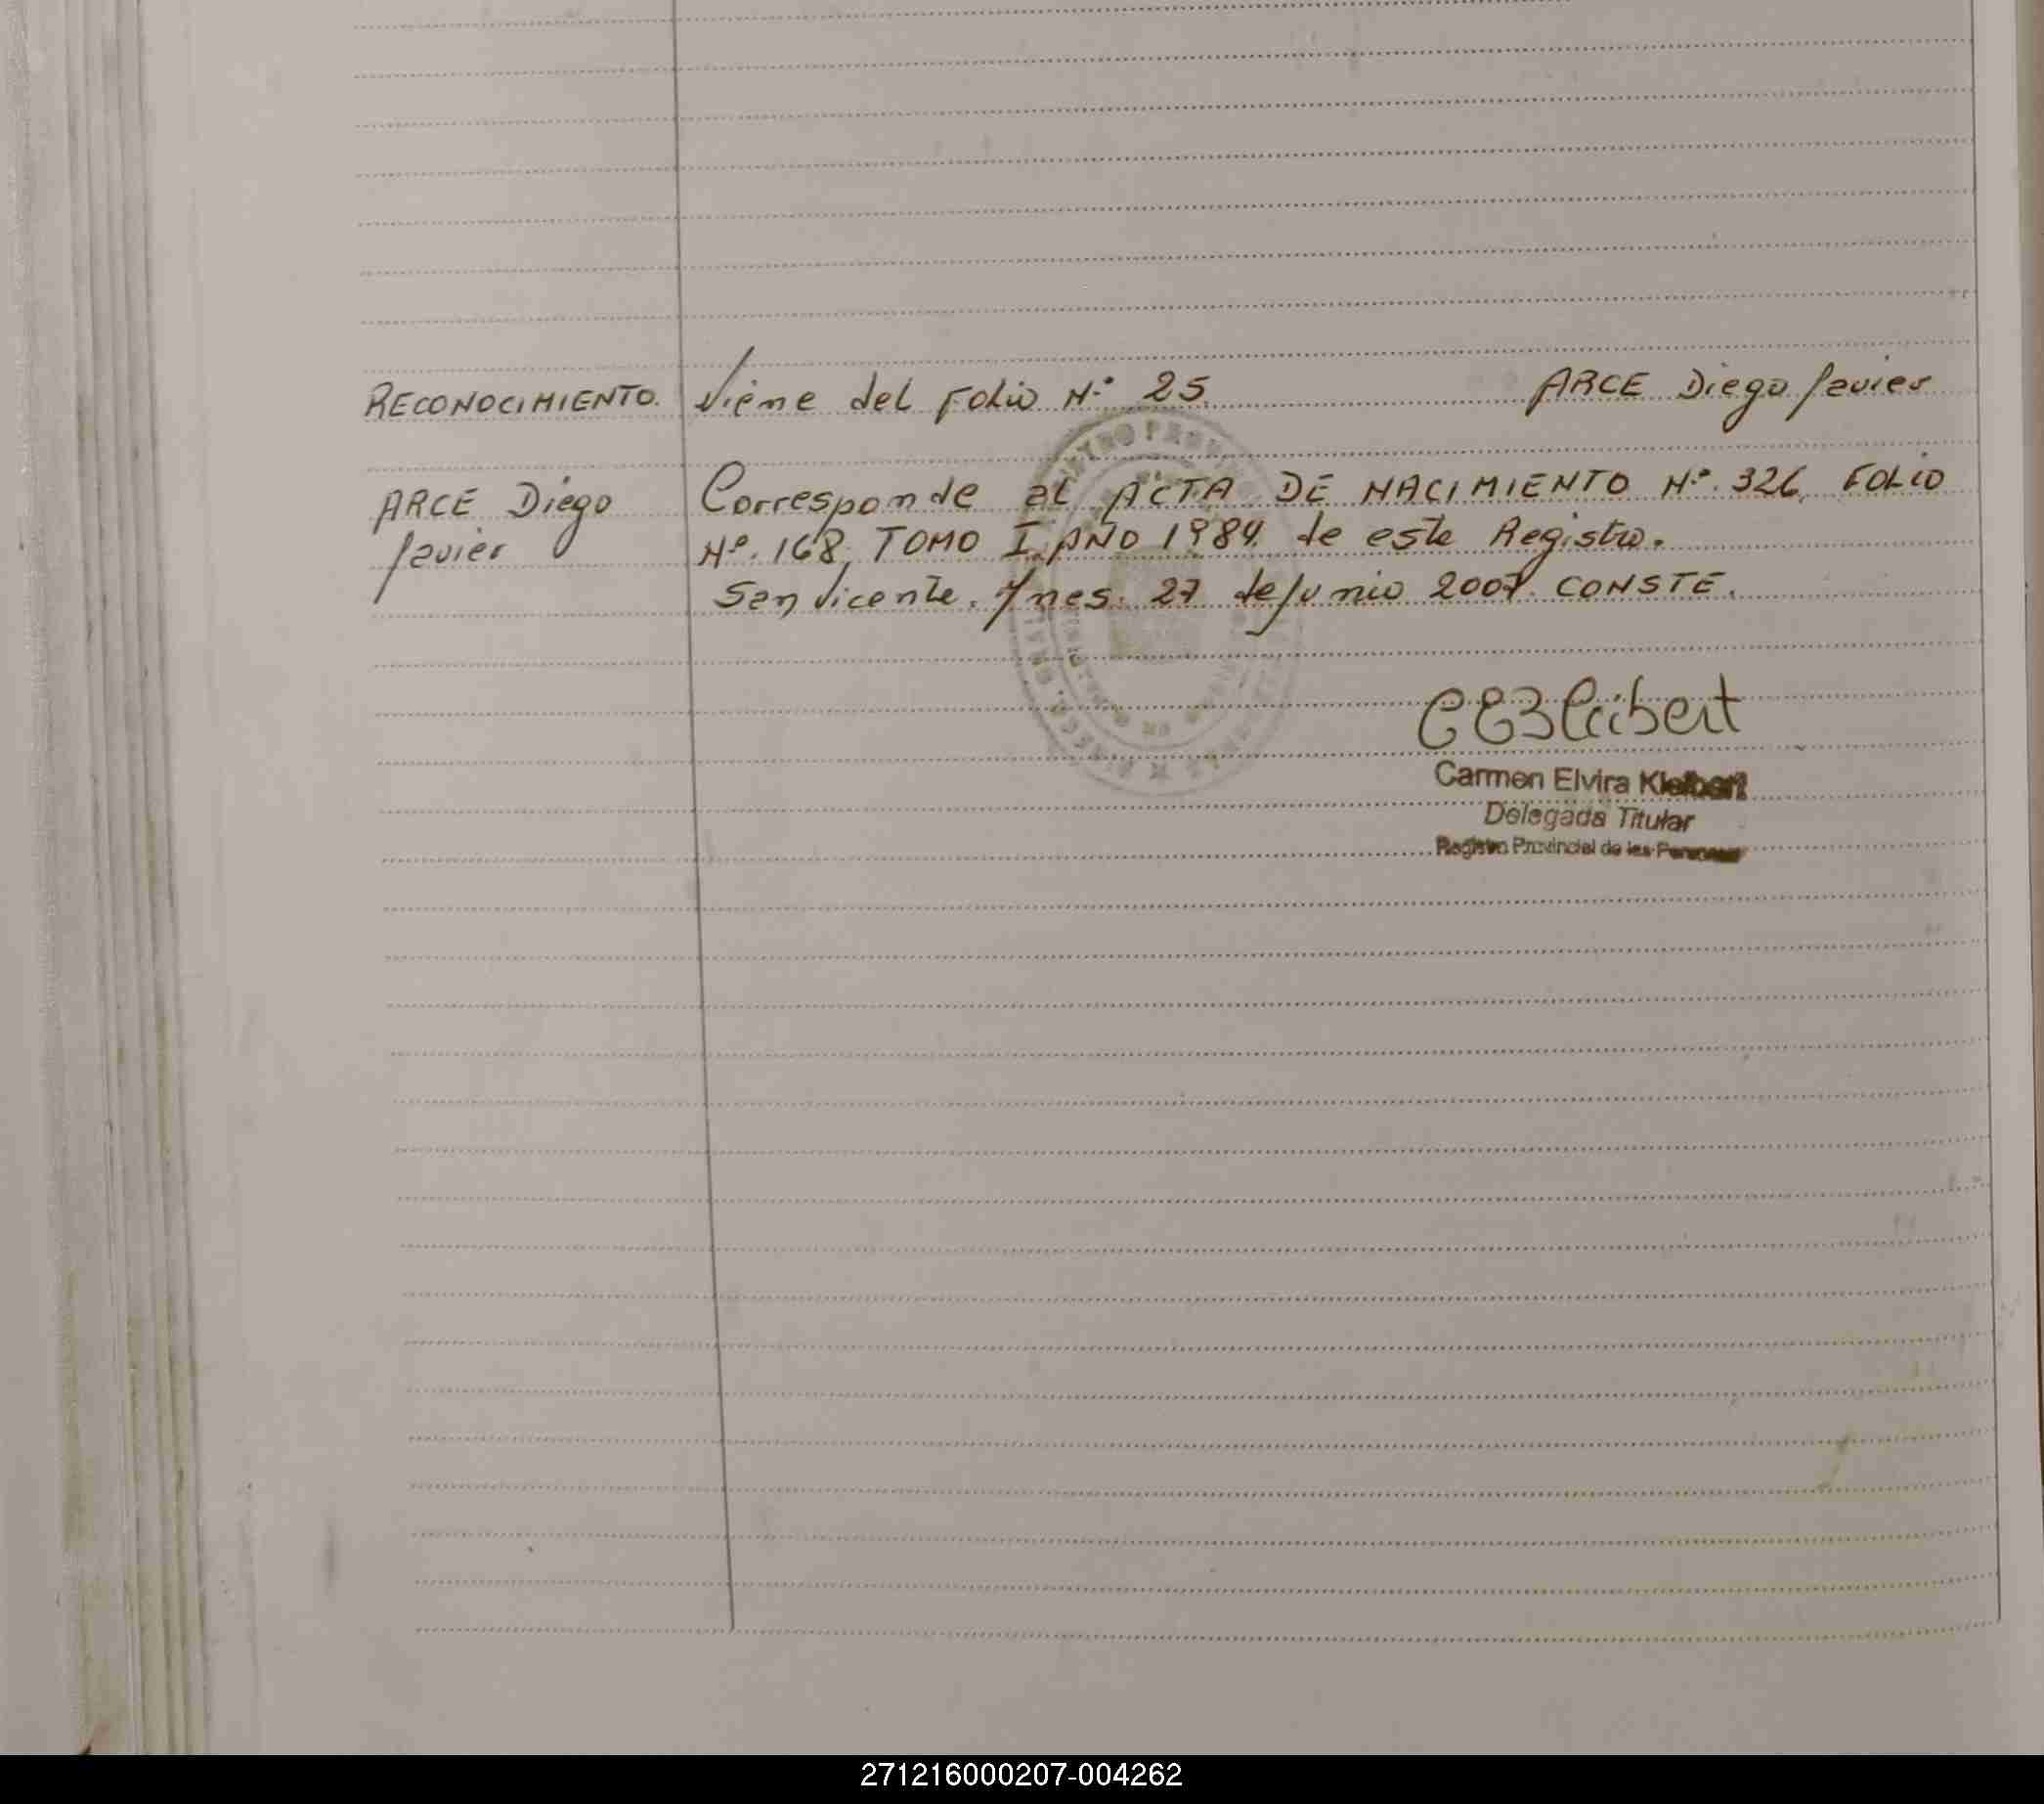 RECONOCIMIENTO. Viene del Folio Nº 25. ARCE Diego Javier
ARCE Diego Corresponde al ACTA DE NACIMIENTO Nº. 326, FOLIO
Javier Nº. 168, TOMO I. AÑO 1984. de este Registro.
San Vicente. Mnes. 27 de Junio 2007. CONSTE.
Carmen Elvira Kleibert
Delegada Titular
Registro Provincial de las Personas
271216000207-004262